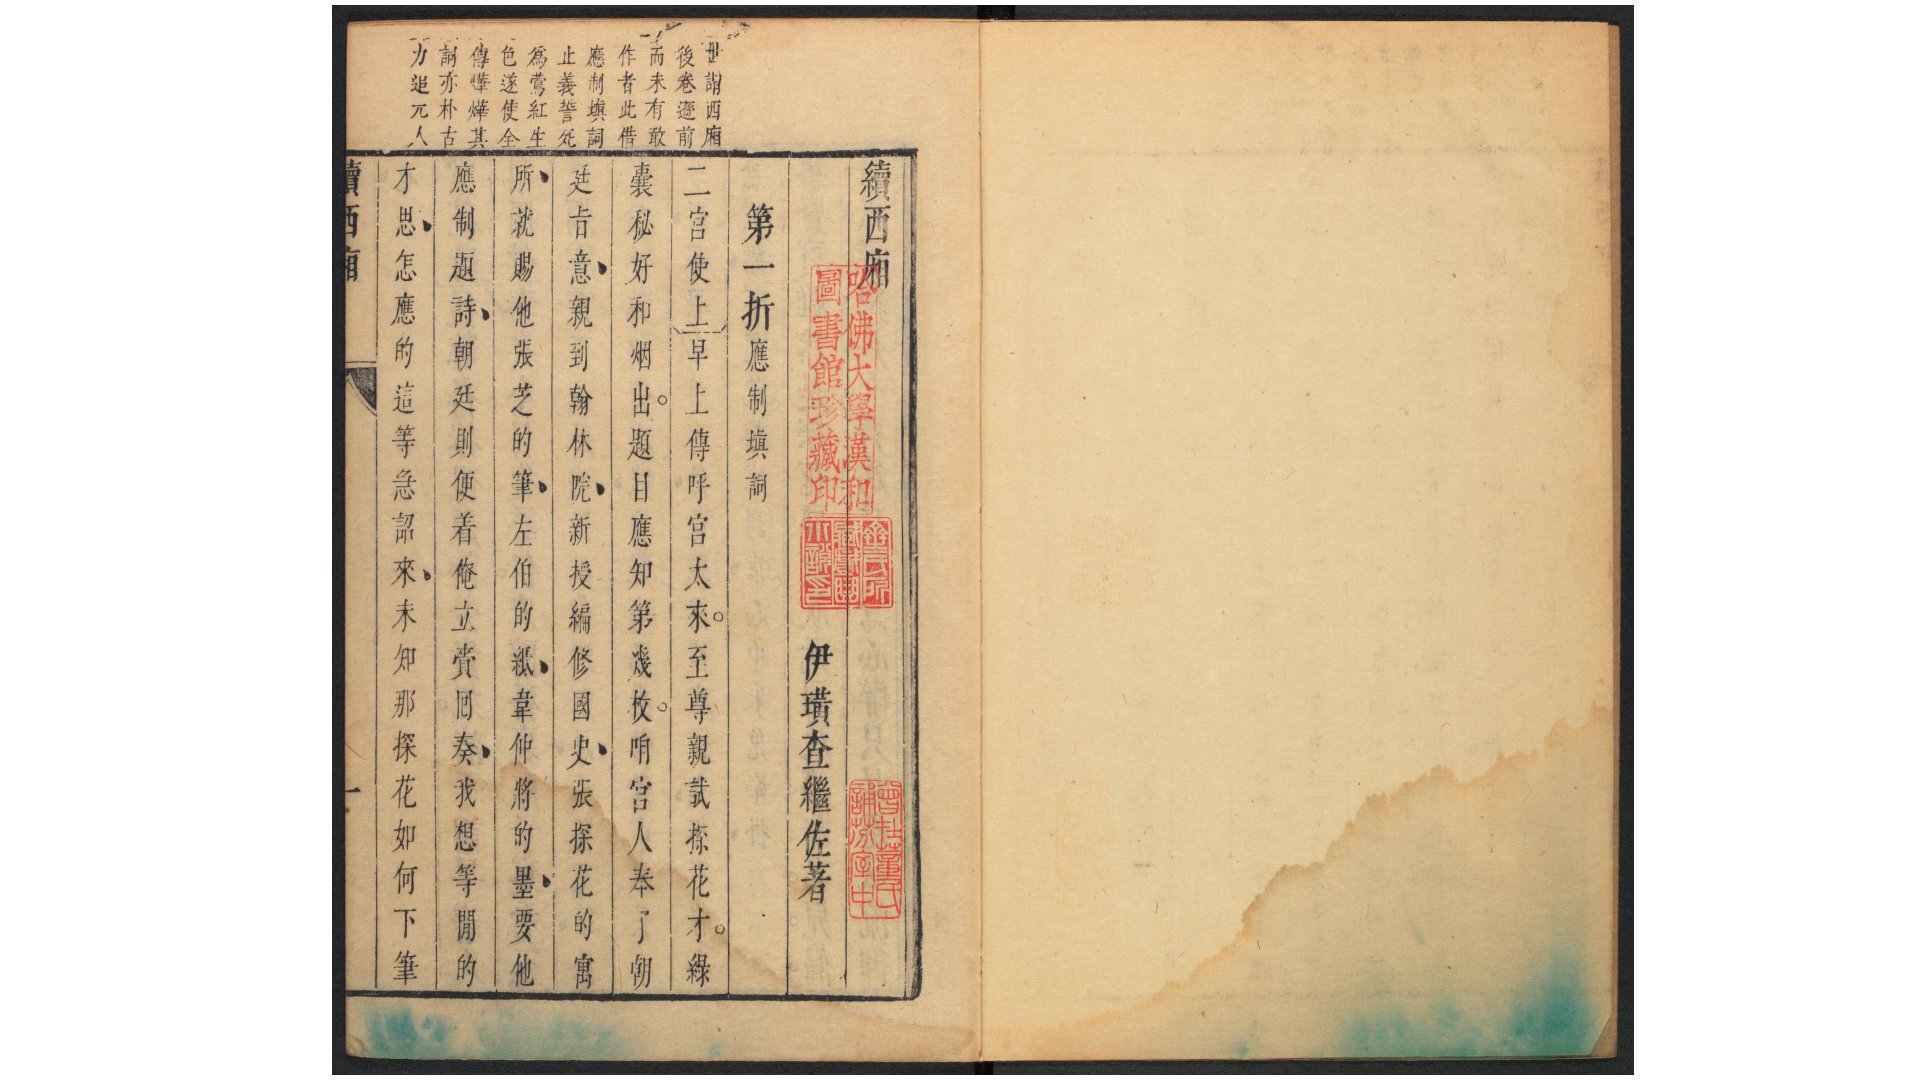 世謂西廂
後卷遜前
而未有敢
作者此借
應制塡詞
止義誓死
為鶯紅生
色遂使全
傳燁燁其
詞亦朴古
力追元人
續西廂
哈佛大學漢和
圖書館珍藏印
齊氏所
藏戲曲
小說印
曾在董氏
誦芬室中
伊璜查繼佐著
第一折應制塡詞
二宮使上早上傳呼宮太來。至尊親試探花才。綠
囊秘好和烟出。題目應知第幾枚。咱宮人奉了朝
廷旨意、親到翰林院、新授編修國史、張探花的寓
所、就賜他張芝的筆、左伯的紙、韋仲將的墨、要他
應制題詩、朝廷則便着俺立賫囘奏、我想等閒的
才思、怎應的這等急詔來、未知那探花如何下筆
續西廂
一